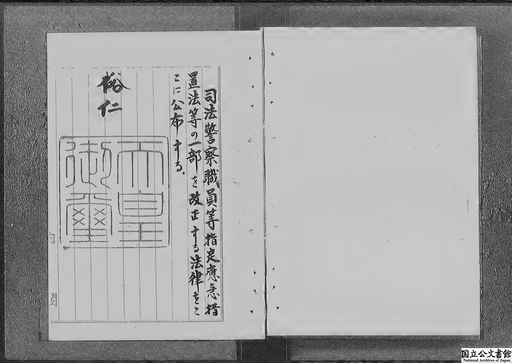 司法警察職員等指定應急措
置法等の一部を改正する法律をこ
こに公布する。
裕仁
天皇
御璽
国立公文書館
National Archives of Japan